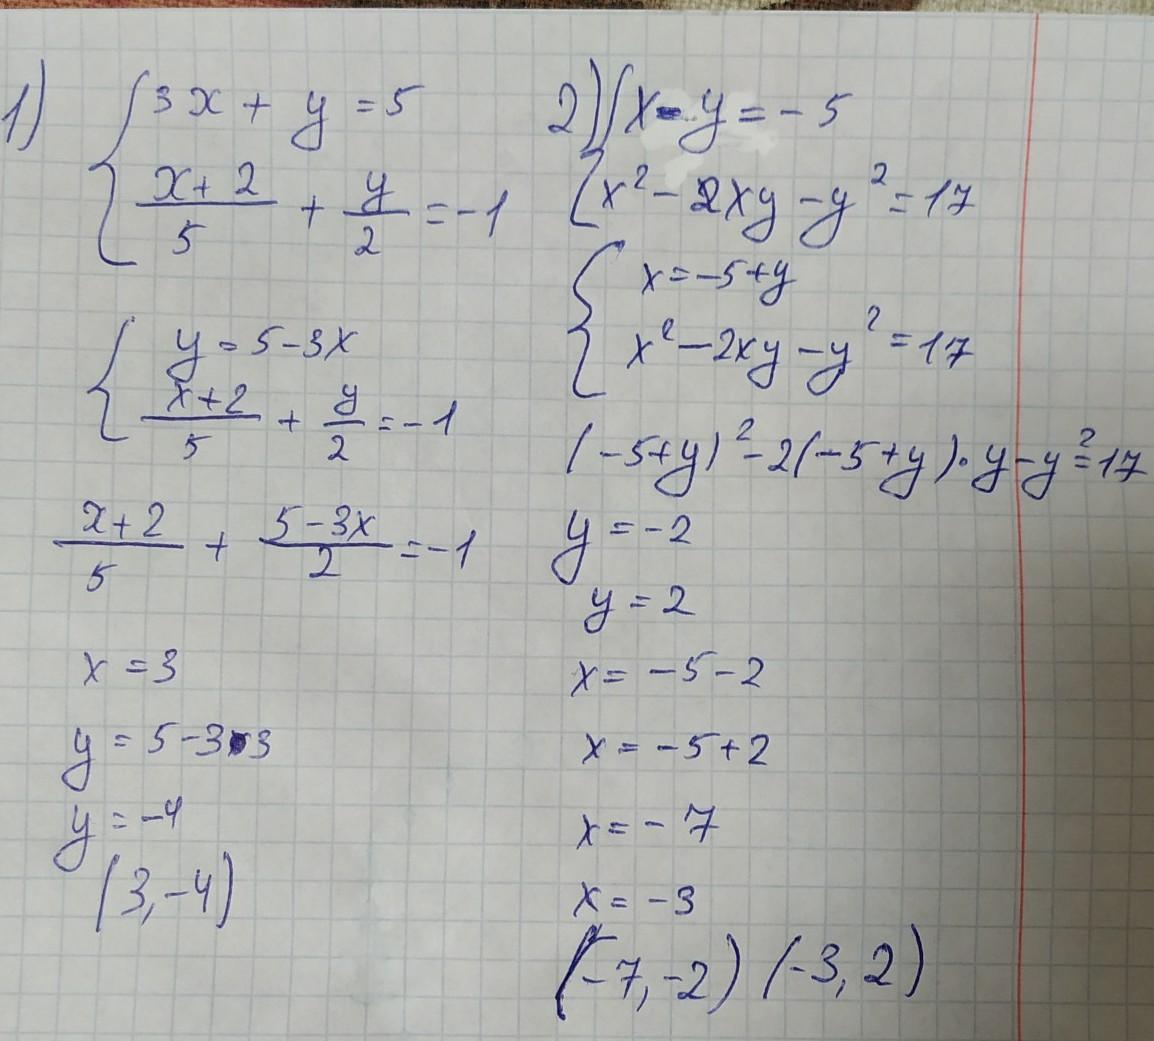 1) { 3x + y = 5
x+2/5 + y/2 = -1
{ y = 5-3x
x+2/5 + y/2 = -1
x+2/5 + 5-3x/2 = -1
x = 3
y = 5-3·3
y = -4
(3,-4)
2) { x-y = -5
x²-2xy-y² = 17
{ x = -5+y
x²-2xy-y² = 17
(-5+y)²-2(-5+y)·y-y² = 17
y = -2
y = 2
x = -5-2
x = -5+2
x = -7
x = -3
(-7,-2) (-3,2)